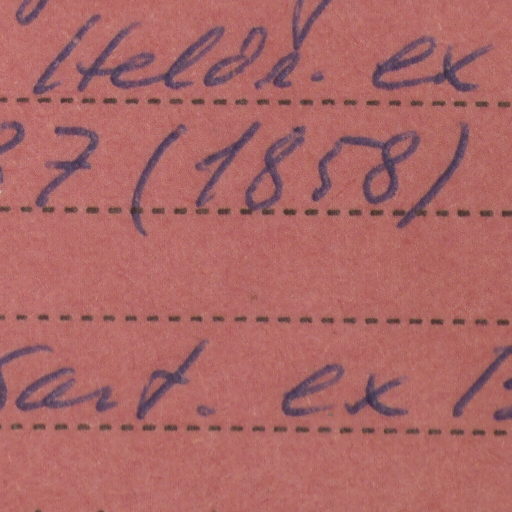 Heldr. ex
87 (1858)
Sart. ex B